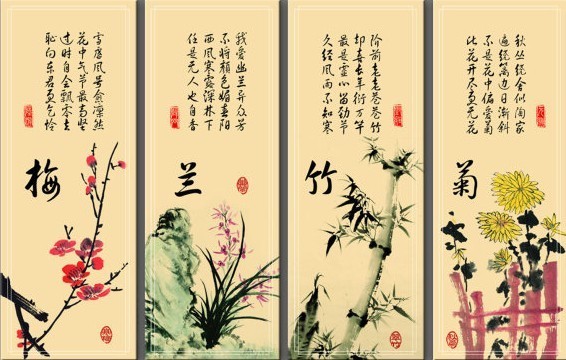 雪虐風号愈凛然
花中气节最高坚
过时自会飘零去
耻向东君更乞怜
梅
我爱幽兰异众芳
不将颜色媚春阳
西風寒露深林下
任是无人也自香
兰
阶前老老苍苍竹
却喜长年衍万竿
最是虚心留劲节
久经風雨不知寒
竹
秋丛绕舍似陶家
遍绕篱边日渐斜
不是花中偏爱菊
此花开尽更无花
菊